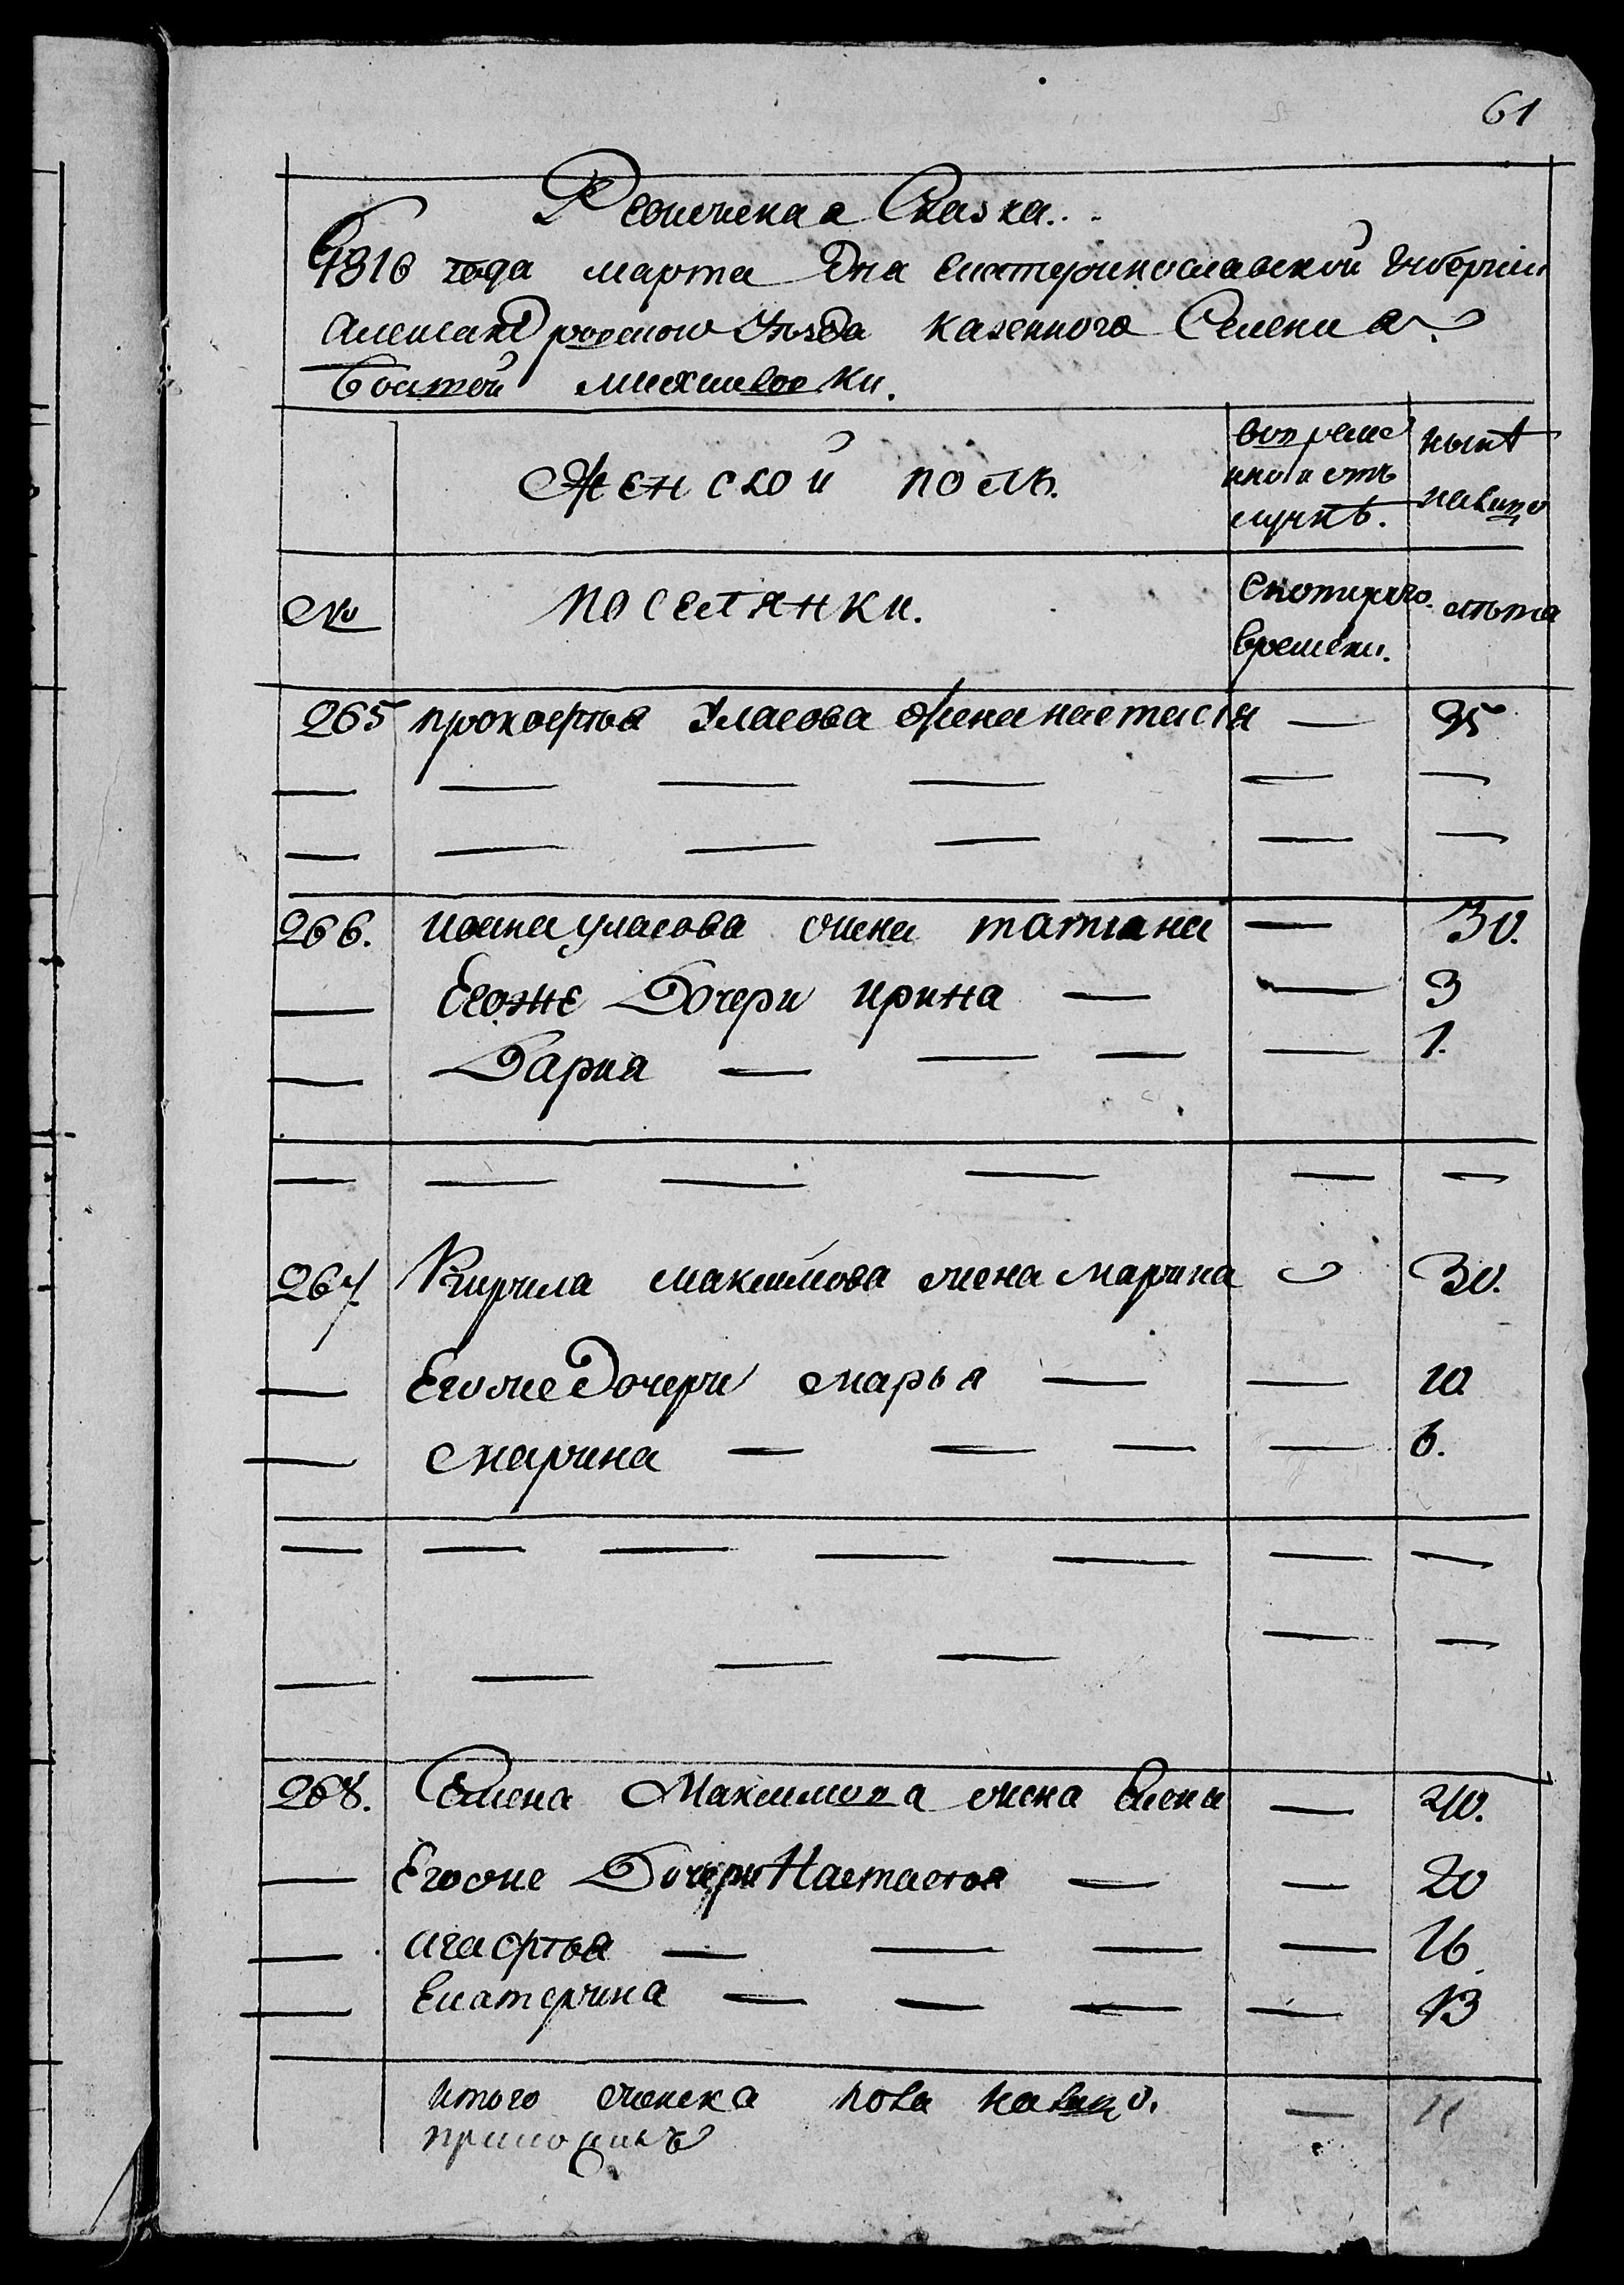 61
Ревижская Сказка
1816 года марта дня Екатеринославской Губернии
Александровского Уѣзда казенного Селения
Богатой михиловки.
Женской полъ.
вовреме
нной отъ
лучкѣ.
нынѣ
налицо
№
поселянки.
Скоторого
времени.
лѣта
265 прокофія Уласова жена настасія — 35
— — — — — —
— — — — — —
266. ивана уласова жена татіана — 30.
— Егоже Дочери ирина — — 3
— Дарія — — — — 1.
— — — — — —
267. Кирила максимова жена марина 30.
— Егоже Дочери марья — — 10.
— марина — — — — 6.
— — — — — — —
— — — — — —
268. Семена Максимова жена Елена — 40.
— Егоже Дочери Настасія — — 20
— агафія — — — — 16
— Екатерина — — — — 13
итого женска пола налицо. — 11